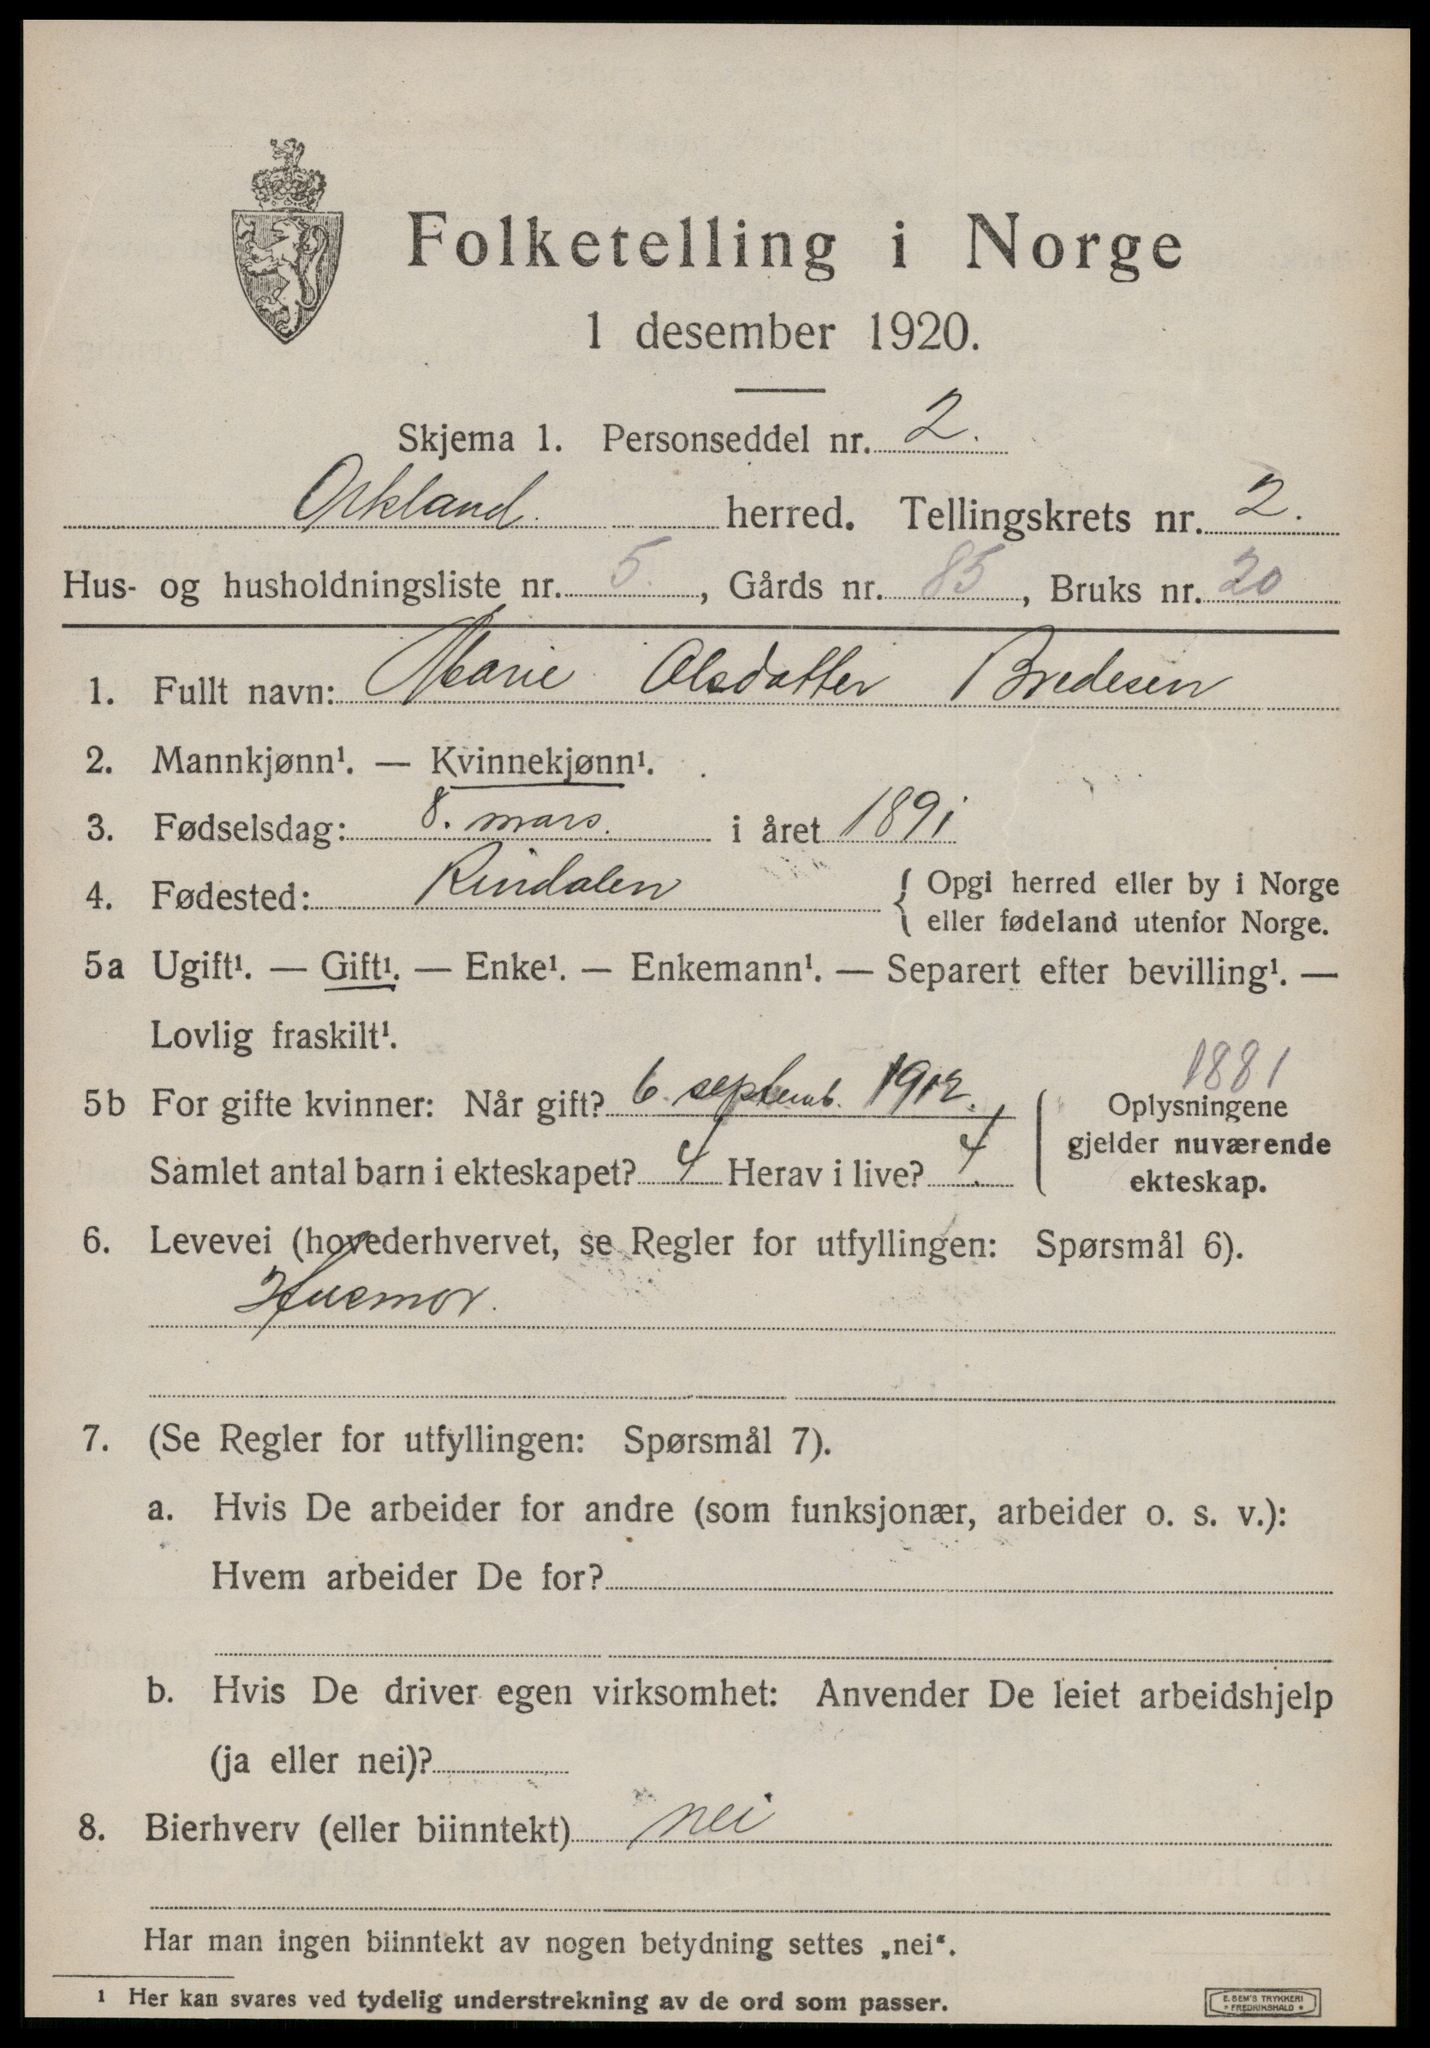 Folketelling i Norge
1 desember 1920.
Skjema 1. Personseddel nr. 2.
Orkland herred. Tellingskrets nr. 2.
Hus- og husholdningsliste nr. 5. , Gårds nr. 85 , Bruks nr. 20
1. Fullt navn: Marie Olsdatter Bredesen
2. Mannkjønn¹. — Kvinnekjønn¹.
3. Fødselsdag: 8. mars. i året 1891
4. Fødested: Rindalen { Opgi herred eller by i Norge
eller fødeland utenfor Norge.
5a Ugift¹. — Gift¹. — Enke¹. — Enkemann¹. — Separert efter bevilling¹. —
Lovlig fraskilt¹.
1881
5b For gifte kvinner: Når gift? 6 septemb. 1912. { Oplysningene
gjelder nuværende
ekteskap.
Samlet antal barn i ekteskapet? 4 Herav i live? 4.
6. Levevei (hovederhvervet, se Regler for utfyllingen: Spørsmål 6).
Husmor.
7. (Se Regler for utfyllingen: Spørsmål 7).
a. Hvis De arbeider for andre (som funksjonær, arbeider o. s. v.):
Hvem arbeider De for?
b. Hvis De driver egen virksomhet: Anvender De leiet arbeidshjelp
(ja eller nei)?
8. Bierhverv (eller biinntekt) nei
Har man ingen biinntekt av nogen betydning settes „nei“.
1 Her kan svares ved tydelig understrekning av de ord som passer.
E. SEM'S TRYKKERI
FREDRIKSHALD